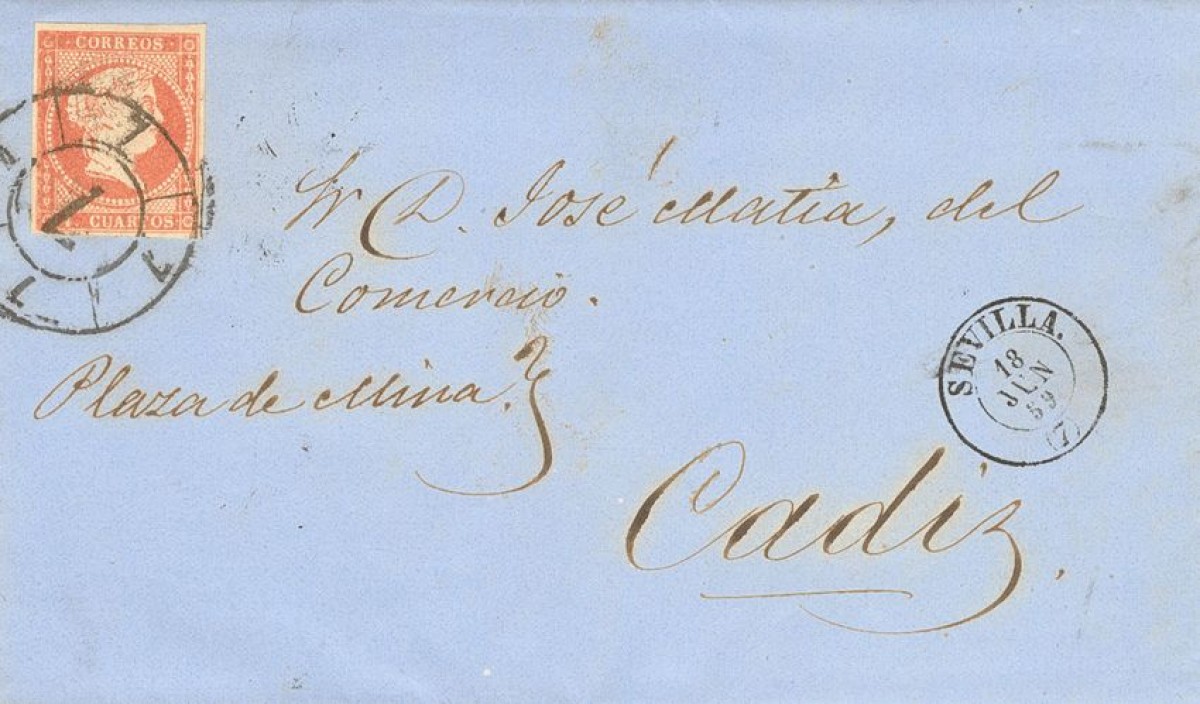 CORREOS
CUARTOS
1
1
1
1
Sr D. José Matia, del
Comercio.
Plaza de Mina.
SEVILLA.
18
JUN
59
(7)
Cadiz.